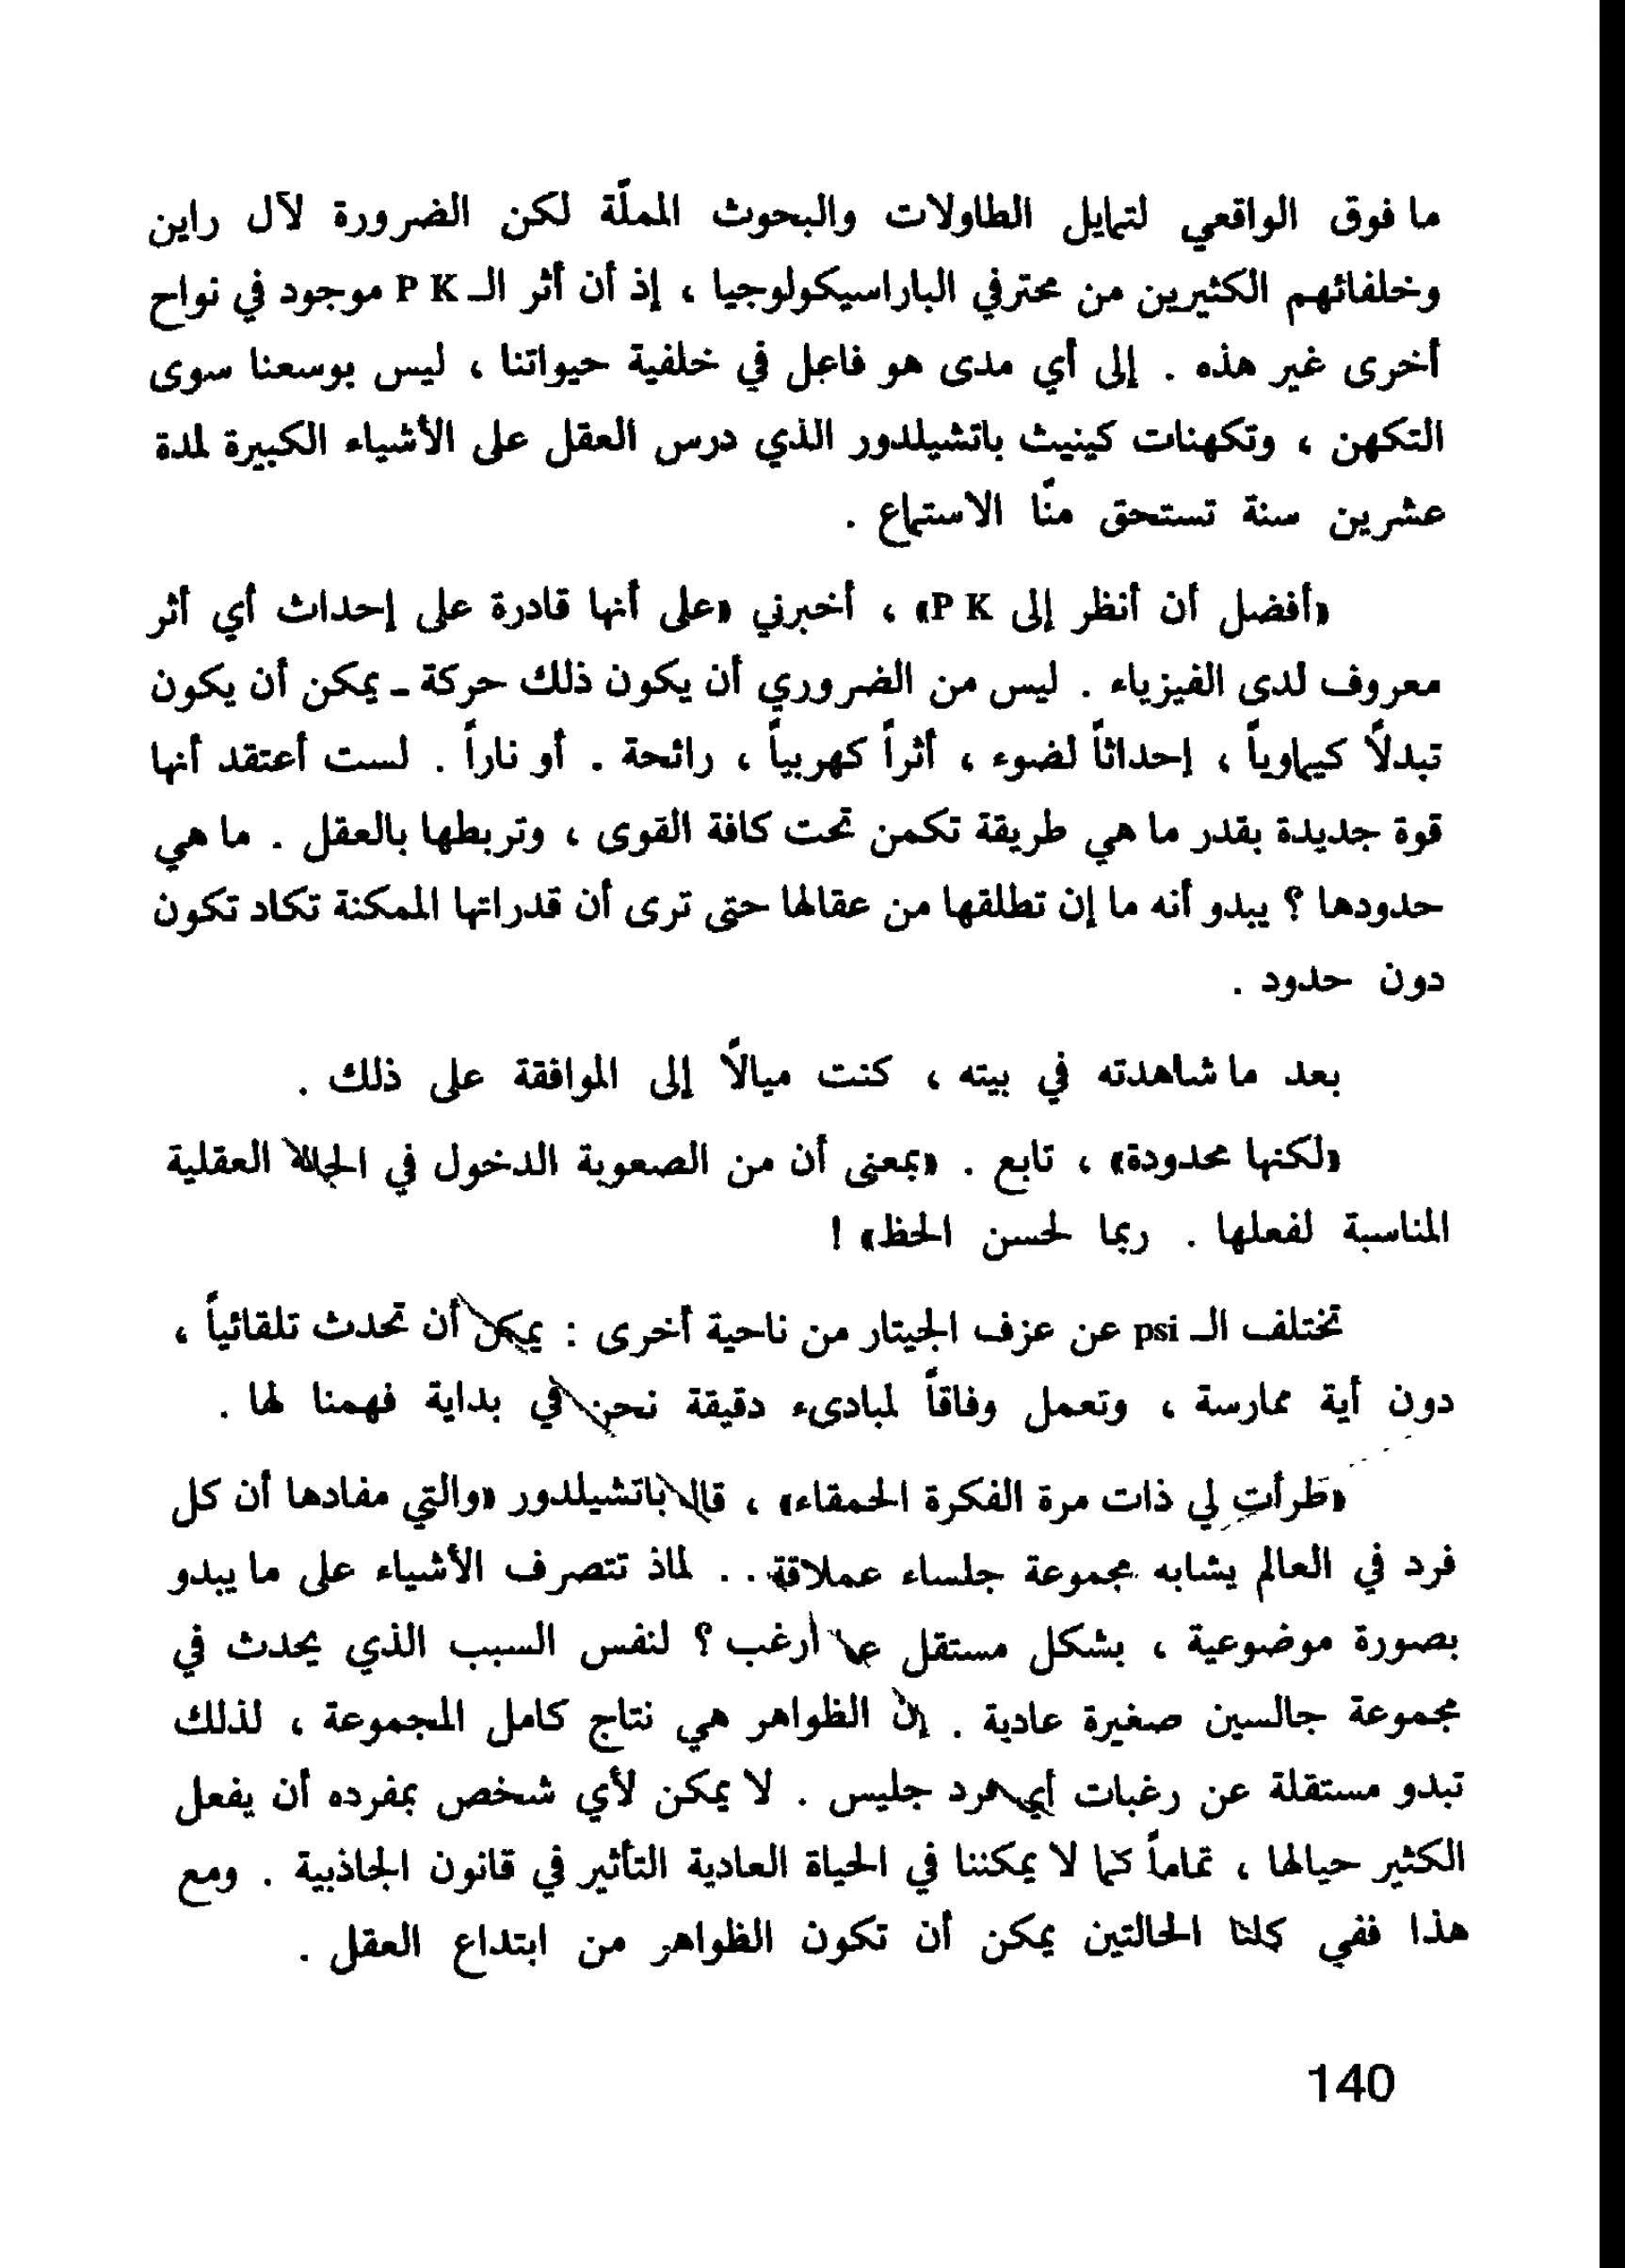 ما فوق الواقعي لتمايل الطاولات والبحوث المملّة لكن الضرورة لآل راين
وخلفائهم الكثيرين من محترفي الباراسيكولوجيا ، إذ أن أثر الـ P K موجود في نواح
أخرى غير هذه . إلى أي مدى هو فاعل في خلفية حيواتنا ، ليس بوسعنا سوى
التكهن ، وتكهنات كينيث باتشيلدور الذي درس العقل على الأشياء الكبيرة لمدة
عشرين سنة تستحق منّا الاستماع .
«أفضل أن أنظر إلى P K» ، أخبرني «على أنها قادرة على إحداث أي أثر
معروف لدى الفيزياء . ليس من الضروري أن يكون ذلك حركة ـ يمكن أن يكون
تبدلاً كيماوياً ، إحداثاً لضوء ، أثراً كهربياً ، رائحة . أو ناراً . لست أعتقد أنها
قوة جديدة بقدر ما هي طريقة تكمن تحت كافة القوى ، وتربطها بالعقل . ما هي
حدودها ؟ يبدو أنه ما إن تطلقها من عقالها حتى ترى أن قدراتها الممكنة تكاد تكون
دون حدود .
بعد ما شاهدته في بيته ، كنت ميالاً إلى الموافقة على ذلك .
«لكنها محدودة» ، تابع . «بمعنى أن من الصعوبة الدخول في العقلية
المناسبة لفعلها . ربما لحسن الحظ» !
تختلف الـ psi عن عزف الجيتار من ناحية أخرى : يمكن أن تحدث تلقائياً ،
دون أية ممارسة ، وتعمل وفاقاً لمبادىء دقيقة نحن في بداية فهمنا لها .
«طرأت لي ذات مرة الفكرة الحمقاء» ، قال باتشيلدور «والتي مفادها أن كل
فرد في العالم يشابه مجموعة جلساء عملاقة . . لماذ تتصرف الأشياء على ما يبدو
بصورة موضوعية ، بشكل مستقل عما أرغب ؟ لنفس السبب الذي يحدث في
مجموعة جالسين صغيرة عادية . إن الظواهر هي نتاج كامل المجموعة ، لذلك
تبدو مستقلة عن رغبات أي فرد جليس . لا يمكن لأي شخص بمفرده أن يفعل
الكثير حيالها ، تماماً كما لا يمكننا في الحياة العادية التأثير في قانون الجاذبية . ومع
هذا ففي كلتا الحالتين يمكن أن تكون الظواهر من ابتداع العقل .
140